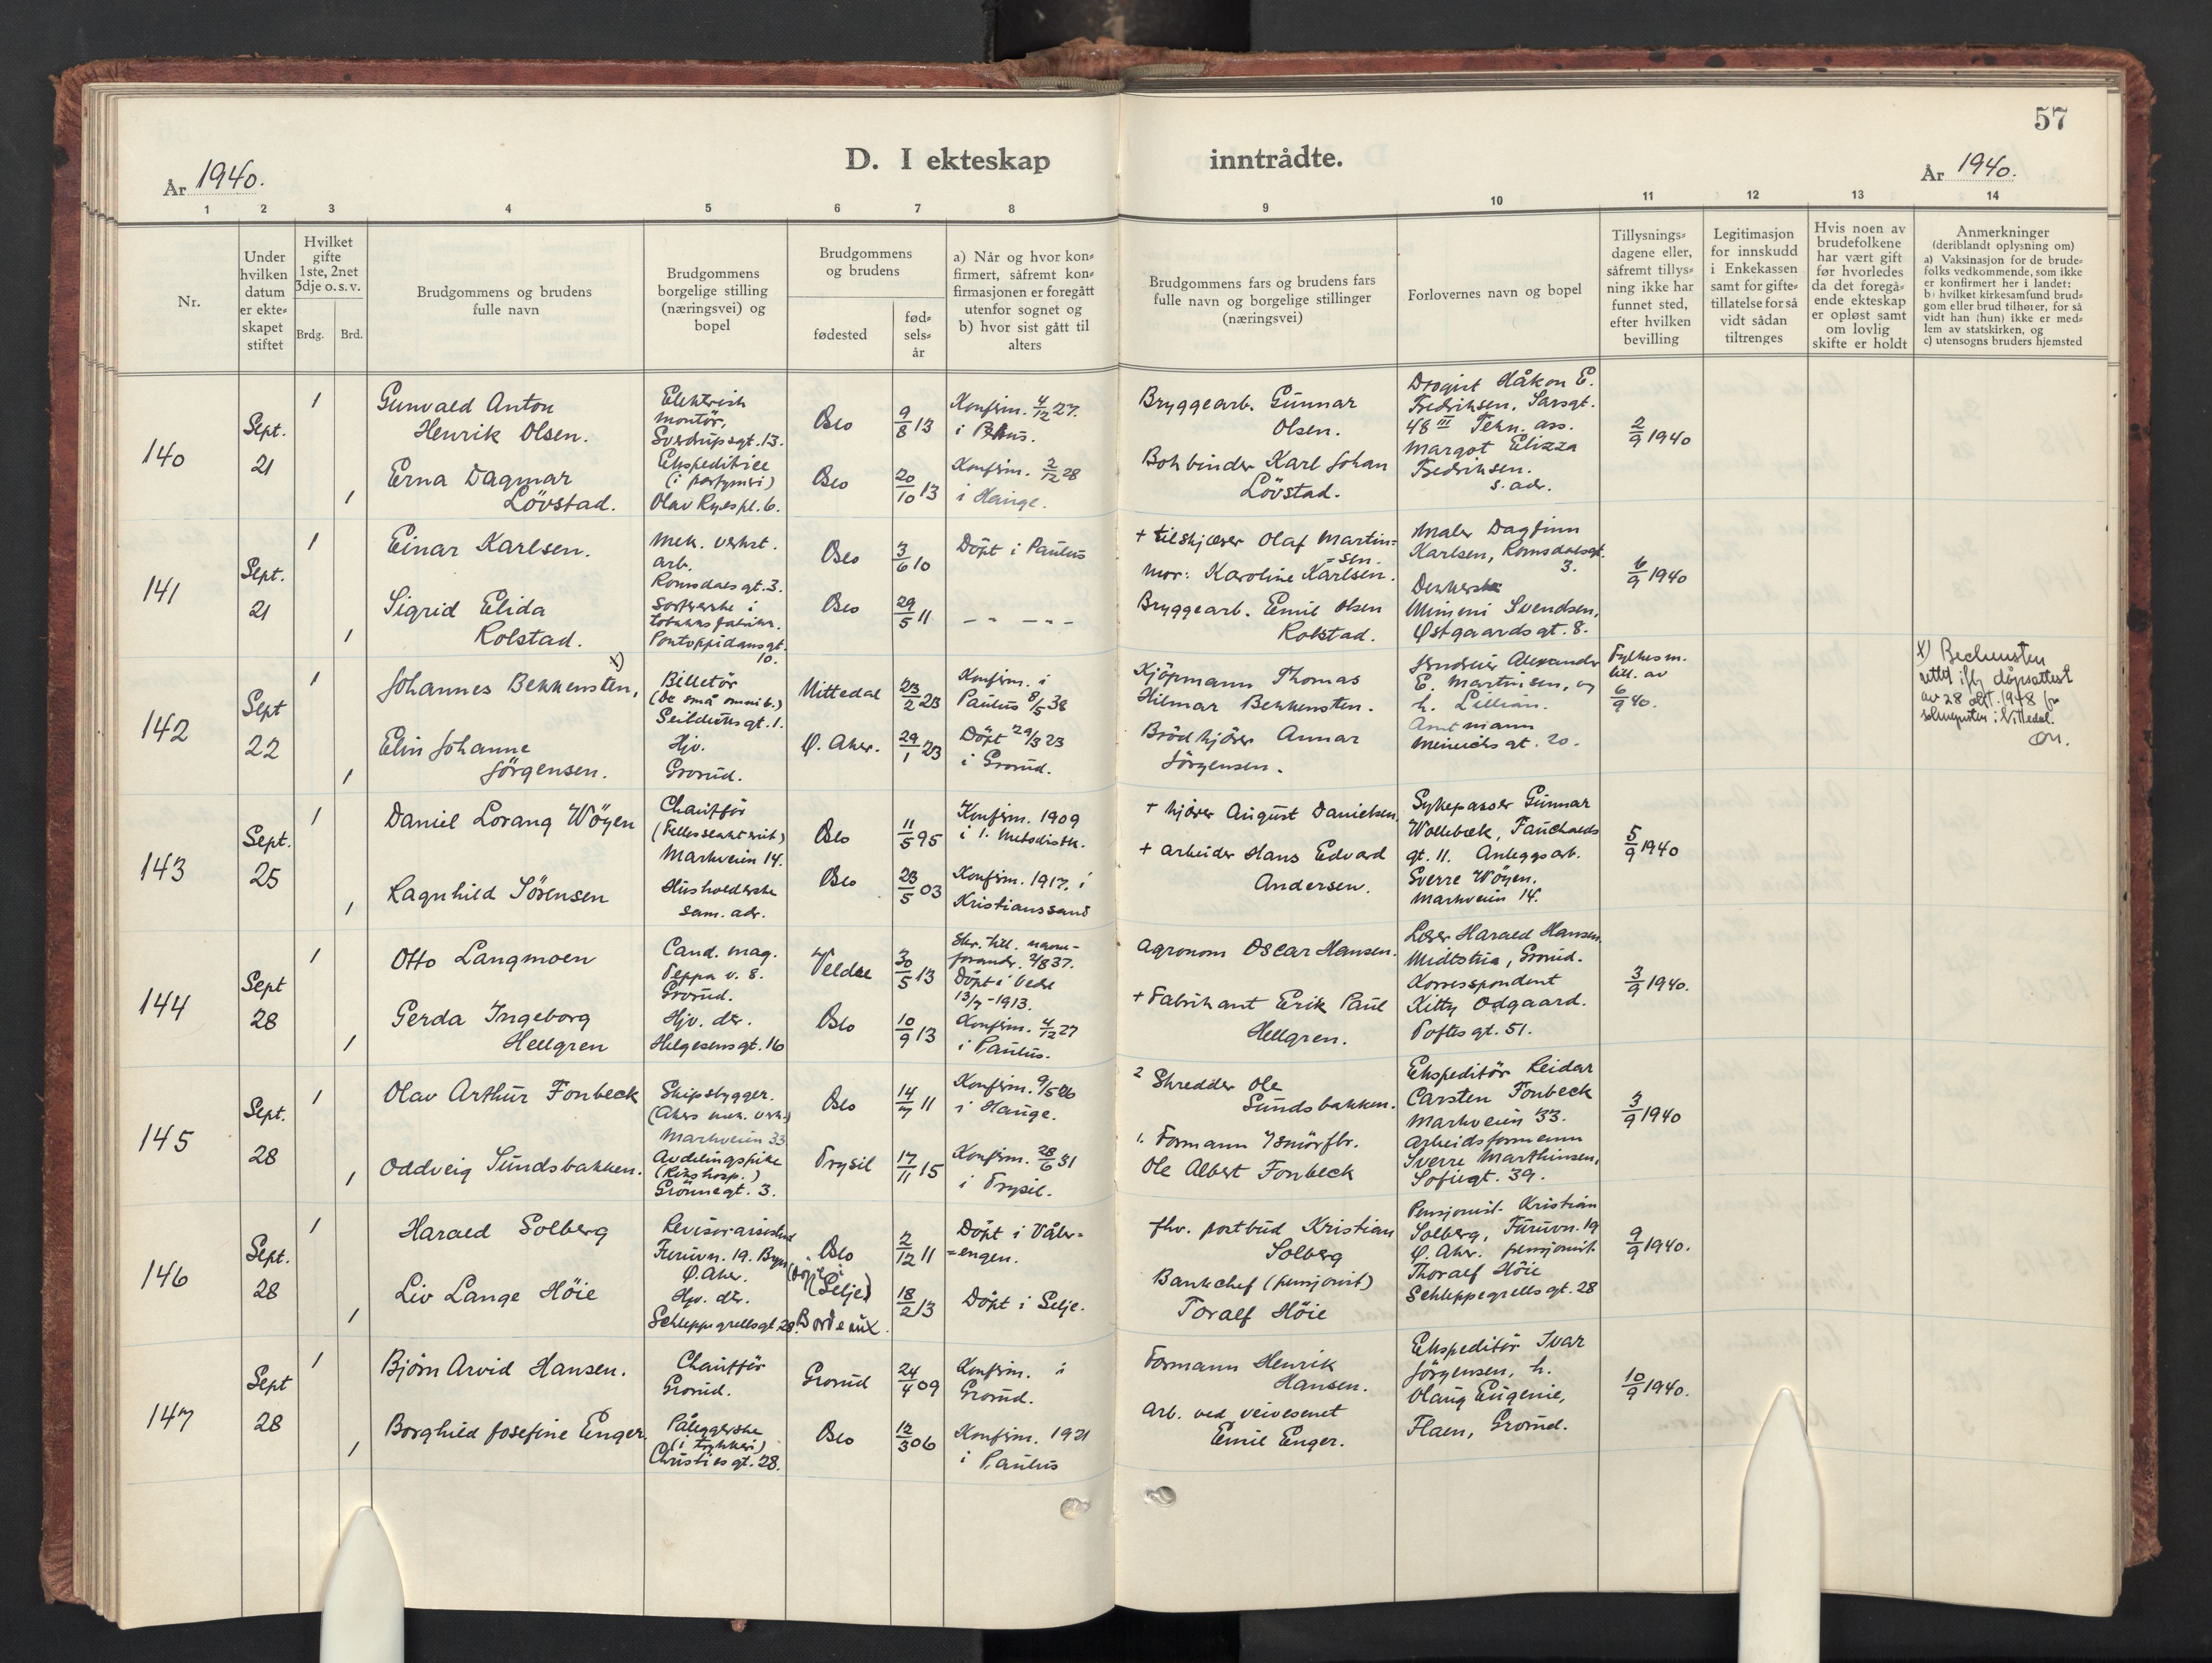 57
D. I ekteskap inntrådte.
År 1940.
År 1940.
1 2 3 4 5 6 7 8 9 10 11 12 13 14
Nr.
Under
hvilken
datum
er ekte-
skapet
stiftet
Hvilket
gifte
1ste, 2net
3dje o. s. v.
Brdg. Brd.
Brudgommens og brudens
fulle navn
Brudgommens
borgelige stilling
(næringsvei) og
bopel
Brudgommens
og brudens
fødested
fød-
sels-
år
a) Når og hvor kon-
firmert, såfremt kon-
firmasjonen er foregått
utenfor sognet og
b) hvor sist gått til
alters
Brudgommens fars og brudens fars
fulle navn og borgelige stillinger
(næringsvei)
Forlovernes navn og bopel
Tillysnings-
dagene eller,
såfremt tillys-
ning ikke har
funnet sted,
efter hvilken
bevilling
Legitimasjon
for innskudd
i Enkekassen
samt for gifte-
tillatelse for så
vidt sådan
tiltrenges
Hvis noen av
brudefolkene
har vært gift
før hvorledes
da det foregå-
ende ekteskap
er opløst samt
om lovlig
skifte er holdt
Anmerkninger
(deriblandt oplysning om)
a) Vaksinasjon for de brude-
folks vedkommende, som ikke
er konfirmert her i landet:
b) hvilket kirkesamfund brud-
gom eller brud tilhører, for så
vidt han (hun) ikke er med-
lem av statskirken, og
c) utensogns bruders hjemsted
140
Sept.
21
1
1
Gunvald Anton
Henrik Olsen.
Erna Dagmar
Lövstad.
Elektrisk
montör,
Sverdrupsgt. 13.
Ekspeditrice
(i parfymeri)
Olav Ryespl. 6.
Oslo
Oslo
9/8 13
20/10 13
Konfirm. 4/12 27.
i
Konfirm. 2/12 28
i Hauge.
Bryggearb. Gunnar
Olsen.
Bokbinder Karl Johan
Lövstad.
Drogist Håkon E.
Fredriksen, Sarsgt.
48 III Tekn. ass.
Margot Elizza
Fredriksen.
s. adr.
2/9 1940
141
Sept.
21
1
1
Einar Karlsen.
Sigrid Elida
Rolstad.
Mek. verkst.
arb.
Romsdalsgt. 3.
Sorterske i
tobakksfabrikk.
Pontoppidansgt.
10.
Oslo
Oslo
3/6 10
29/5 11
Döpt i Paulus
– " – – –
+ tilskjærer Olaf Martin=
=sen.
Mor: Karoline Karlsen.
Bryggearb. Emil Olsen
Rolstad.
Maler Dagfinn
Karlsen, Romsdalsgt.
3.
Servererske
Mimmi Svendsen,
Østgaardsgt. 8.
6/9 1940
142
Sept
22
1
1
Johannes Bekkensten, x)
Elin Johanne
Jörgensen.
Billetör
(De små omnib.)
Seilduksgt. 1.
Hjv.
Grorud.
Nittedal
Ø. Aker.
23/2 23
29/1 23
Konfirm. i
Paulus 8/5 38
Döpt 29/3 23
i Grorud.
Kjöpmann Thomas
Hilmar Bekkensten.
Brödkjörer Annar
Jörgensen.
Alexander
E. Martinsen, og
h. Lillian.
Amtmann
Meinichsgt. 20.
Fylkesm.
till. av
6/9 40.
x) Bechensten
rettet iflg dåpsattest
av 28 okt. 1978 fra
soknepresten i Nittedal.
143
Sept.
25
1
1
Daniel Lorang Wöyen
Ragnhild Sörensen
Chaufför
Markveien 14.
Husholderske
sam. adr.
Oslo
Oslo
11/5 95
23/5 03
Konfirm. 1909
i 1. Metodistk.
Konfirm. 1917. i
Kristianssand
+ kjörer August Danielsen.
+ arbeider Hans Edvard
Andersen.
Sykepasser Gunnar
Wollebæk, Fauchalds
gt. 11. Anleggsarb.
Sverre Wöyen.
Markveien 14.
5/9 1940
144
Sept
28
1
1
Otto Langmoen
Gerda Ingeborg
Hellgren
Cand. mag.
Teppa v. 8.
Grorud.
Hjv. dtr.
Helgesensgt. 16
Veldre
Oslo
30/5 13
10/9 13
Skr. till. navne-
forandr. 2/8 37.
Döpt i Veldre
13/7 - 1913.
Konfirm. 4/12 27
i Paulus.
Agronom Oscar Hansen.
+ Fabrikant Erik Paul
Hellgren.
Lærer Harald Hansen.
Midtstua, Grorud.
Korrespondent
Kitty Odgaard.
Toftesgt. 51.
3/9 1940.
145
Sept.
28
1
1
Olav Arthur Fonbeck
Oddveig Sundsbakken.
Skipsbygger.
(Akers mek. verk.)
Markveien 33
Avdelingspike
(Rikshosp.)
Grönnegt. 3.
Oslo
Trysil
14/7 11
17/11 15
Konfirm. 9/5 26
i Hauge.
Konfirm. 28/6 31
i Trysil.
2 Skredder Ole
Sundsbakken.
1. Formann i smörfbr.
Ole Albert Fonbeck
Ekspeditör Reidar
Carsten Fonbeck
Markveien 33.
Arbeidsformann
Sverre Marthinsen,
Sofiegt. 39.
3/9 1940
146
Sept.
28
1
1
Harald Solberg
Liv Lange Höie
Revisorassistent
Furuvn. 19. Bryn
Ø. Aker.
Hjv. dtr.
Schleppegrellsgt. 28.
Oslo
(Döpt i
Selje)
Bordeaux.
2/12 11
18/2 13
Döpt i Våler=
=engen.
Döpt i Selje.
fhv. postbud Kristian
Solberg
Bankchef (pensjonist)
Toralf Höie
Pensjonist Kristian
Solberg, Furuvn. 19
Ø. Aker. pensjonist
Thoralf Höie
Schleppegrellsgt. 28
9/9 1940.
147
Sept
28
1
1
Bjørn Arvid Hansen.
Borghild Josefine Enger.
Chaufför
Grorud.
Påleggerske
(i trykkeri)
Christiesgt. 28.
Grorud
Oslo
24/4 09
12/3 06
Konfirm. i
Grorud.
Konfirm. 1921
i Paulus
Formann Henrik
Hansen.
Arb. ved veivesenet
Emil Enger.
Ekspeditör Ivar
Jörgensen, h.
Olaug Eugenie,
Flaen, Grorud.
10/9 1940.